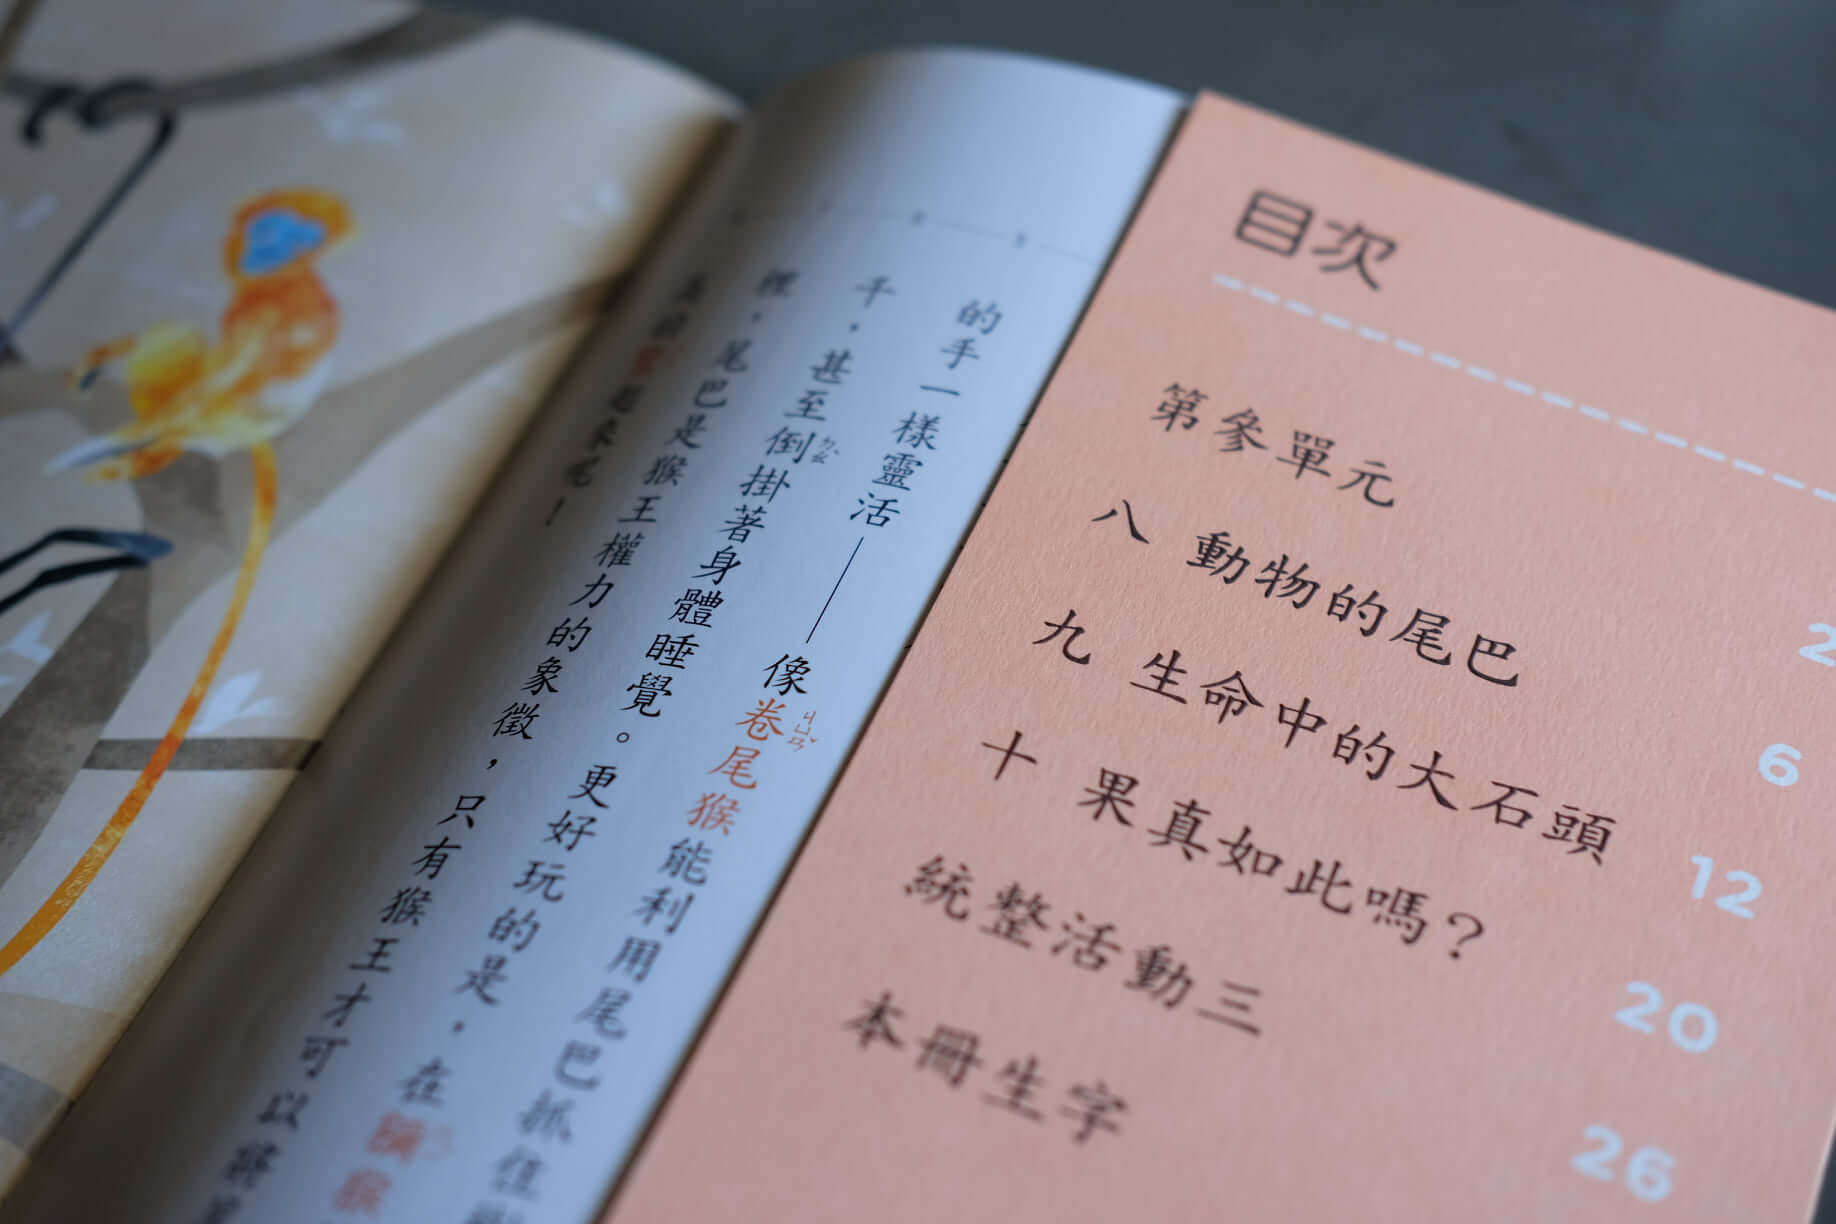 目次
第參單元 2
八 動物的尾巴 6
九 生命中的大石頭 12
十 果真如此嗎？ 20
統整活動三 26
本冊生字
的手一樣靈活——像卷尾猴能利用尾巴抓住
千，甚至倒掛著身體睡覺。更好玩的是，在獼猴
裡，尾巴是猴王權力的象徵，只有猴王才可以
起來呢！